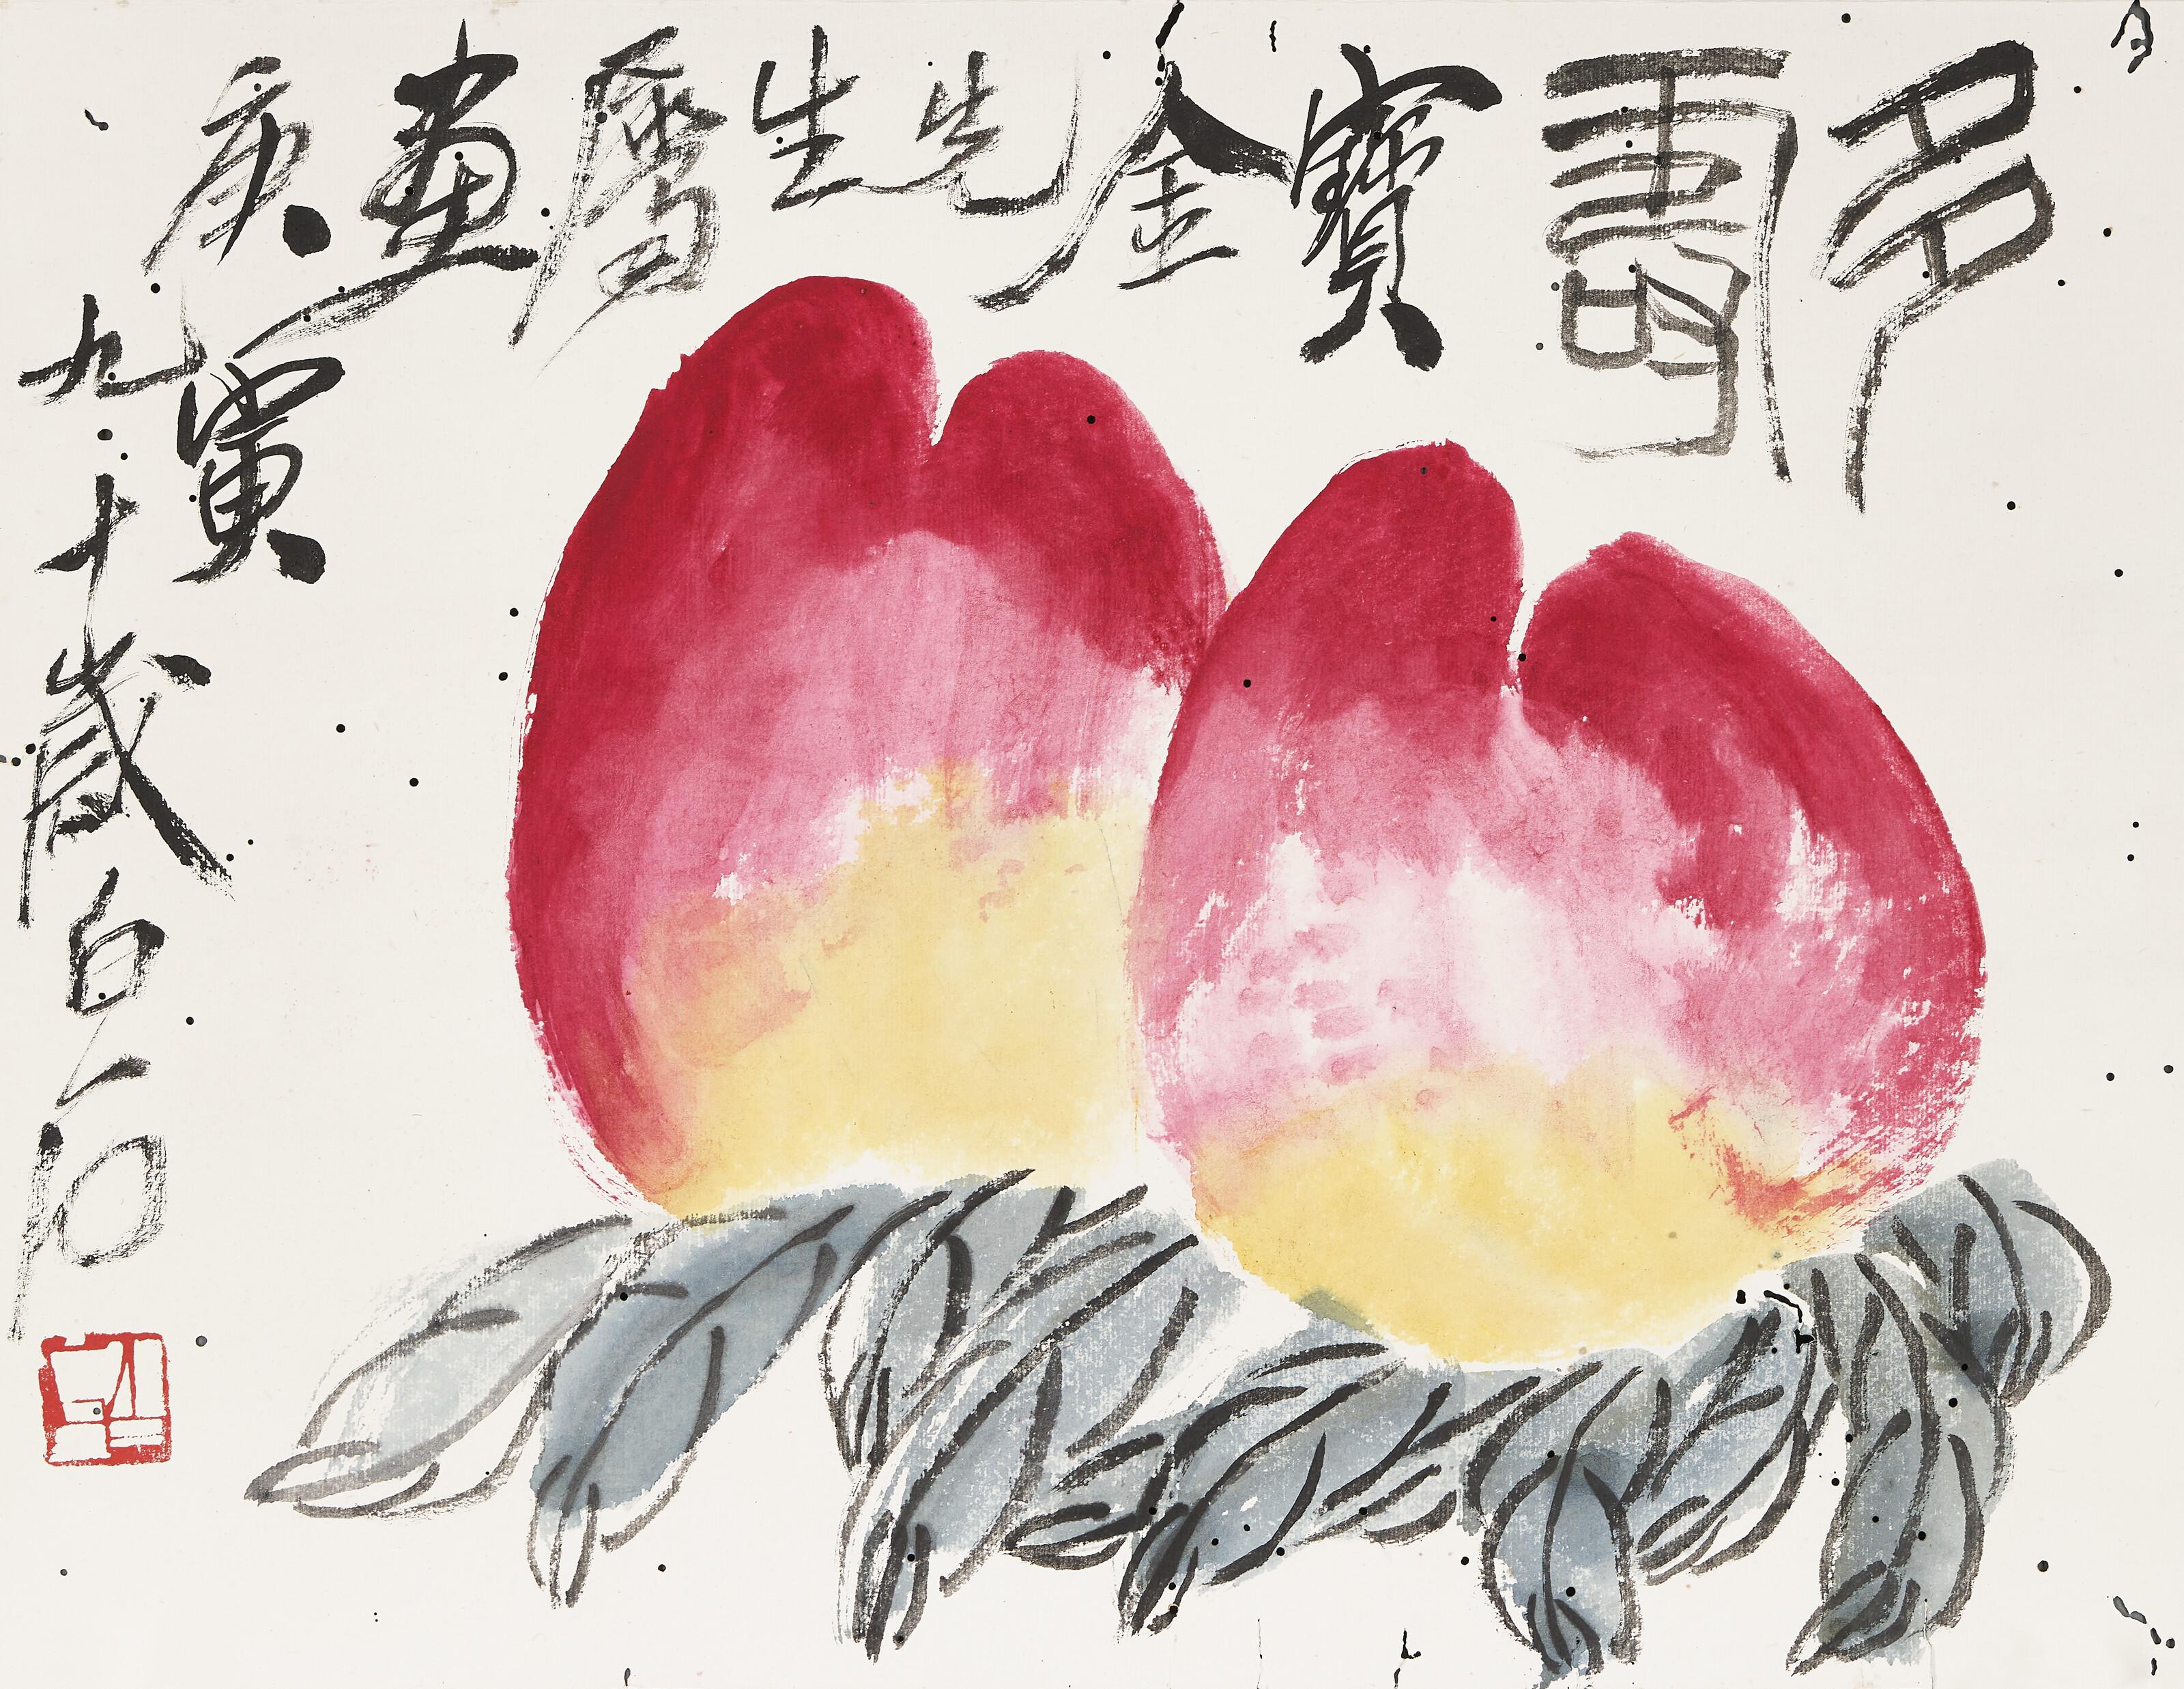 多壽
寶金先生屬畫庚寅
九十歲白石